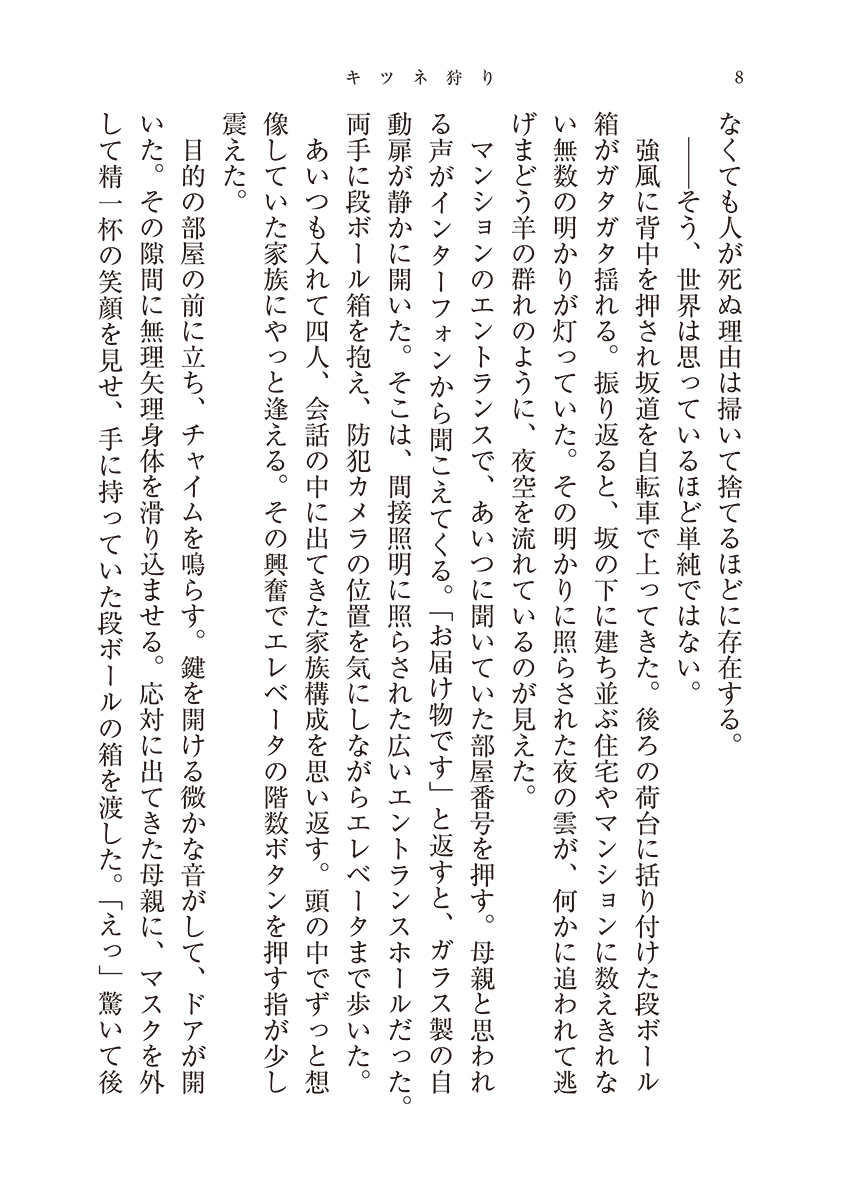 キツネ狩り
8
なくても人が死ぬ理由は掃いて捨てるほどに存在する。
――そう、世界は思っているほど単純ではない。
強風に背中を押され坂道を自転車で上ってきた。後ろの荷台に括り付けた段ボール
箱がガタガタ揺れる。振り返ると、坂の下に建ち並ぶ住宅やマンションに数えきれな
い無数の明かりが灯っていた。その明かりに照らされた夜の雲が、何かに追われて逃
げまどう羊の群れのように、夜空を流れているのが見えた。
マンションのエントランスで、あいつに聞いていた部屋番号を押す。母親と思われ
る声がインターフォンから聞こえてくる。「お届け物です」と返すと、ガラス製の自
動扉が静かに開いた。そこは、間接照明に照らされた広いエントランスホールだった。
両手に段ボール箱を抱え、防犯カメラの位置を気にしながらエレベータまで歩いた。
あいつも入れて四人、会話の中に出てきた家族構成を思い返す。頭の中でずっと想
像していた家族にやっと逢える。その興奮でエレベータの階数ボタンを押す指が少し
震えた。
目的の部屋の前に立ち、チャイムを鳴らす。鍵を開ける微かな音がして、ドアが開
いた。その隙間に無理矢理身体を滑り込ませる。応対に出てきた母親に、マスクを外
して精一杯の笑顔を見せ、手に持っていた段ボールの箱を渡した。「えっ」驚いて後